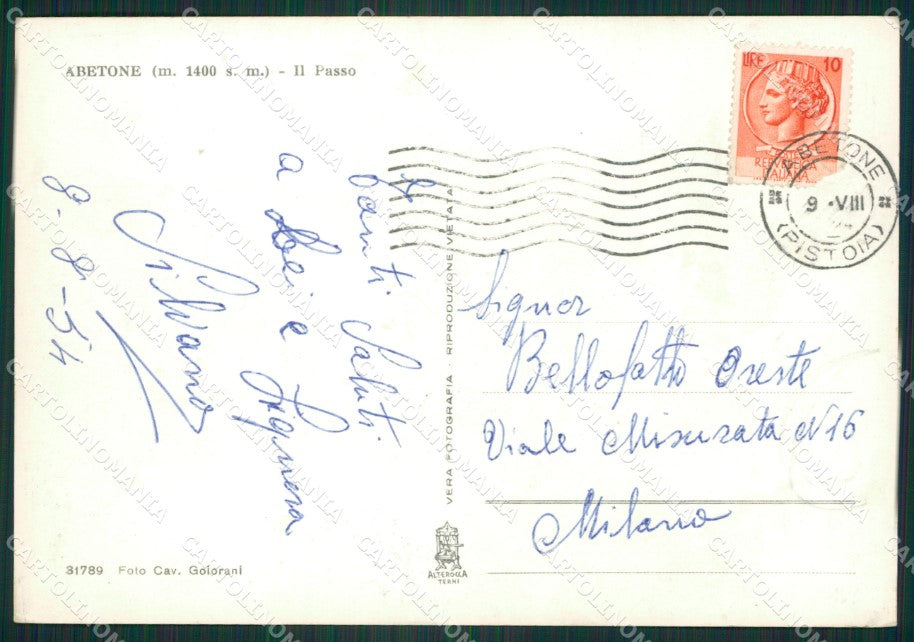 ABETONE (m. 1400 s. m.) - Il Passo
LIRE 10
POSTE
REPVBBLICA
ITALIANA
ABETONE
9 -VIII
(PISTOIA)
Tanti Saluti
a Lei e Signora
Silvano
8-8-54
VERA FOTOGRAFIA - RIPRODUZIONE VIETATA
Signor
Bellofatto Oreste
Viale Misurata N 16
Milano
31789 Foto Cav. Goiorani
ALTEROCCA
TERNI
CARTOLINOMANIA